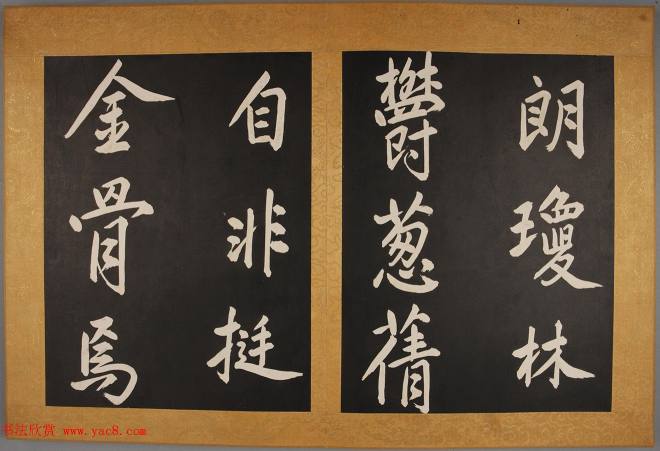 朗瓊林
鬱葱蒨
自非挺
金骨焉
书法欣赏 www.yac8.com